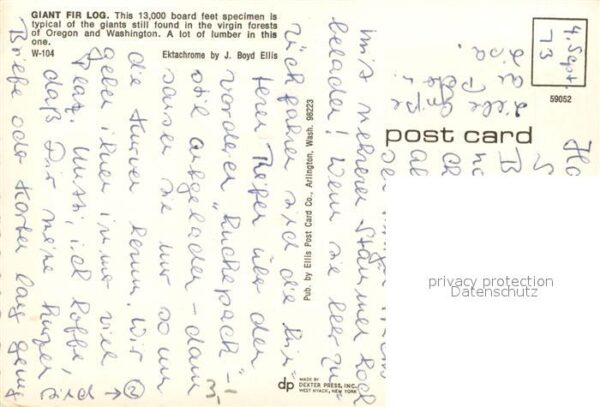 GIANT FIR LOG. This 13,000 board feet specimen is
typical of the giants still found in the virgin forests
of Oregon and Washington. A lot of lumber in this
one.
W-104
Ektachrome by J. Boyd Ellis
4. Sept.
73
59052
post card
Pub. by Ellis Post Card Co., Arlington, Wash. 98223
mit mehreren Stämmen hoch
beladen! Wenn sie leer zu-
rückfahren sind die hin-
teren Reifen über den
vorderen "huckepack"-
aufgeladen - dann
sausen sie nur so um
die Kurven herum. Wir
geben ihnen immer viel
Platz. Mutti, ich hoffe,
daß Dir meine kurzen
Briefe oder Karten lang genug
sind → ②
Liebe Grüße
3,-
privacy protection
Datenschutz
dp
MADE BY
DEXTER PRESS, INC.
WEST NYACK, NEW YORK